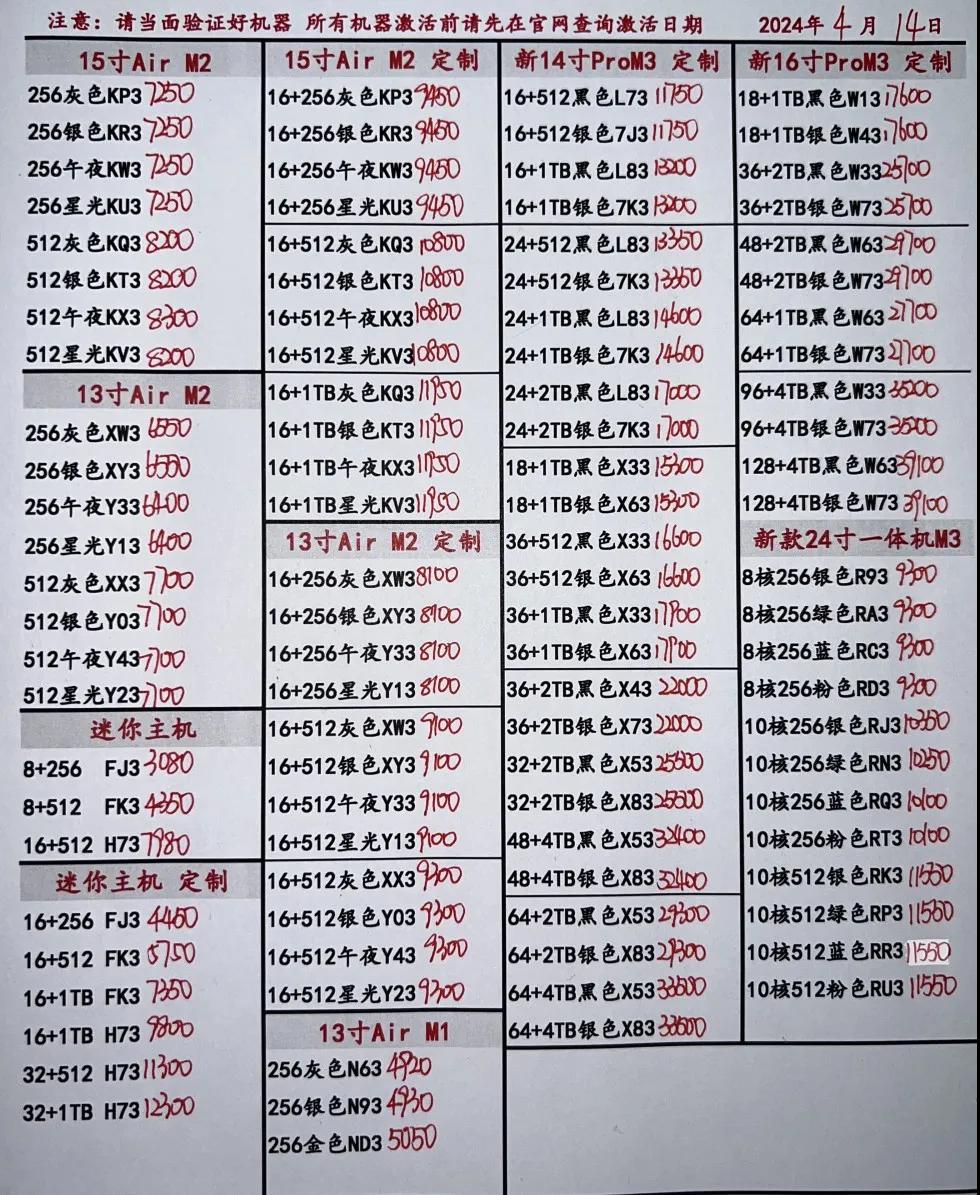 注意：请当面验证好机器 所有机器激活前请先在官网查询激活日期 2024年4月14日
15寸Air M2
256灰色KP3 7250
256银色KR3 7250
256午夜KW3 7250
256星光KU3 7250
512灰色KQ3 8200
512银色KT3 8200
512午夜KX3 8300
512星光KV3 8200
13寸Air M2
256灰色XW3 6550
256银色XY3 6550
256午夜Y33 6400
256星光Y13 6400
512灰色XX3 7700
512银色Y03 7700
512午夜Y43 7700
512星光Y23 7700
迷你主机
8+256 FJ3 3080
8+512 FK3 4350
16+512 H73 7980
迷你主机 定制
16+256 FJ3 4460
16+512 FK3 5750
16+1TB FK3 7350
16+1TB H73 9800
32+512 H73 11300
32+1TB H73 12300
15寸Air M2 定制
16+256灰色KP3 9450
16+256银色KR3 9450
16+256午夜KW3 9450
16+256星光KU3 9450
16+512灰色KQ3 10800
16+512银色KT3 10800
16+512午夜KX3 10800
16+512星光KV3 10800
16+1TB灰色KQ3 11950
16+1TB银色KT3 11950
16+1TB午夜KX3 11950
16+1TB星光KV3 11950
13寸Air M2 定制
16+256灰色XW3 8100
16+256银色XY3 8100
16+256午夜Y33 8100
16+256星光Y13 8100
16+512灰色XW3 9100
16+512银色XY3 9100
16+512午夜Y33 9100
16+512星光Y13 9100
16+512灰色XX3 9300
16+512银色Y03 9300
16+512午夜Y43 9300
16+512星光Y23 9300
13寸Air M1
256灰色N63 4920
256银色N93 4930
256金色ND3 5050
新14寸ProM3 定制
16+512黑色L73 11750
16+512银色7J3 11750
16+1TB黑色L83 13200
16+1TB银色7K3 13200
24+512黑色L83 13350
24+512银色7K3 13350
24+1TB黑色L83 14600
24+1TB银色7K3 14600
24+2TB黑色L83 17000
24+2TB银色7K3 17000
18+1TB黑色X33 15300
18+1TB银色X63 15300
36+512黑色X33 16600
36+512银色X63 16600
36+1TB黑色X33 17900
36+1TB银色X63 17900
36+2TB黑色X43 22000
36+2TB银色X73 22000
32+2TB黑色X53 25500
32+2TB银色X83 25500
48+4TB黑色X53 32400
48+4TB银色X83 32400
64+2TB黑色X53 29300
64+2TB银色X83 29300
64+4TB黑色X53 33500
64+4TB银色X83 33500
新16寸ProM3 定制
18+1TB黑色W13 17600
18+1TB银色W43 17600
36+2TB黑色W33 25700
36+2TB银色W73 25700
48+2TB黑色W63 29700
48+2TB银色W73 29700
64+1TB黑色W63 27700
64+1TB银色W73 27700
96+4TB黑色W33 35200
96+4TB银色W73 35200
128+4TB黑色W63 39100
128+4TB银色W73 39100
新款24寸一体机M3
8核256银色R93 9300
8核256绿色RA3 9300
8核256蓝色RC3 9300
8核256粉色RD3 9300
10核256银色RJ3 10350
10核256绿色RN3 10250
10核256蓝色RQ3 10100
10核256粉色RT3 10100
10核512银色RK3 11550
10核512绿色RP3 11550
10核512蓝色RR3 11550
10核512粉色RU3 11550